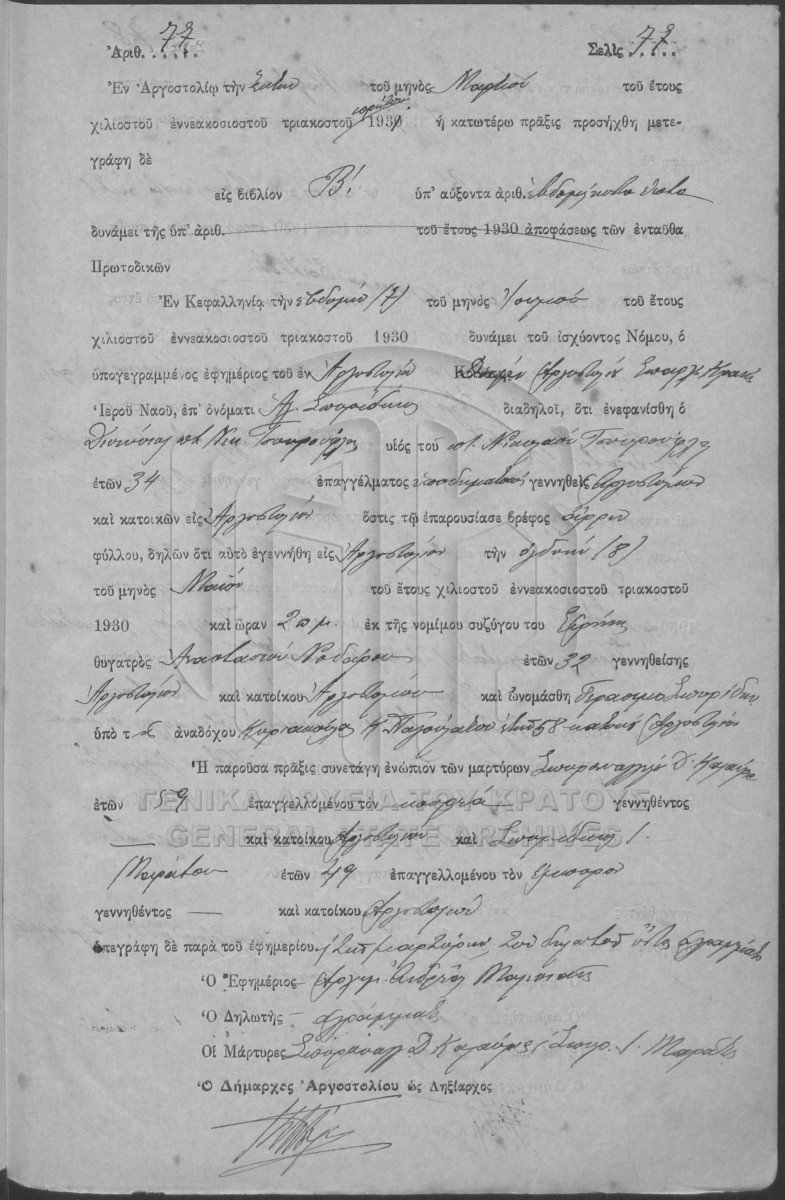 Ἀριθ. 77 Σελὶς 77
Ἐν Ἀργοστολίῳ τὴν ἕκτην τοῦ μηνὸς Μαρτίου τοῦ ἔτους
χιλιοστοῦ ἐννεακοσιοστοῦ τριακοστοῦ πρώτου 1931 ἡ κατωτέρω πρᾶξις προσήχθη μετε-
γράφη δὲ
εἰς βιβλίον Β! ὑπ' αὔξοντα ἀριθ. ἑβδομήκοντα ἑπτὰ
δυνάμει τῆς ὑπ' ἀριθ. τοῦ ἔτους 1930 ἀποφάσεως τῶν ἐνταῦθα
Πρωτοδικῶν
Ἐν Κεφαλληνίᾳ τὴν ἑβδόμην (7) τοῦ μηνὸς Ἰουνίου τοῦ ἔτους
χιλιοστοῦ ἐννεακοσιοστοῦ τριακοστοῦ 1930 δυνάμει τοῦ ἰσχύοντος Νόμου, ὁ
ὑπογεγραμμένος ἐφημέριος τοῦ ἐν Ἀργοστολίῳ Ἀργοστολίου
Ἱεροῦ Ναοῦ, ἐπ' ὀνόματι Ἁγ. Σπυρίδωνος διαδηλοῖ, ὅτι ἐνεφανίσθη ὁ
Διονύσιος Νικ. υἱὸς τοῦ Νικολάου
ἐτῶν 34 ἐπαγγέλματος ὑποδηματοποιὸς γεννηθεὶς Ἀργοστόλιον
καὶ κατοικῶν εἰς Ἀργοστόλιον ὅστις τῷ ἐπαρουσίασε βρέφος ἄρρεν
φύλλου, δηλῶν ὅτι αὐτὸ ἐγεννήθη εἰς Ἀργοστόλιον τὴν ὀγδόην (8)
τοῦ μηνὸς Μαΐου τοῦ ἔτους χιλιοστοῦ ἐννεακοσιοστοῦ τριακοστοῦ
1930 καὶ ὥραν 2 π μ. ἐκ τῆς νομίμου συζύγου του Εἰρήνης
θυγατρὸς Ἀναστασίου ἐτῶν 32 γεννηθείσης
Ἀργοστόλιον καὶ κατοίκου Ἀργοστολίου καὶ ὠνομάσθη Γεράσιμος Σπυρίδων
ὑπὸ τ ἀναδόχου Κυριακούλα Κ. Ἀργοστόλιον
Ἡ παροῦσα πρᾶξις συνετάγη ἐνώπιον τῶν μαρτύρων Δ.
ἐτῶν 59 ἐπαγγελλομένου τὸν γεννηθέντος
καὶ κατοίκου Ἀργοστολίου καὶ Σπυρίδωνος Ι.
Μαράτου ἐτῶν 49 ἐπαγγελλομένου τὸν ἔμπορον
γεννηθέντος καὶ κατοίκου Ἀργοστολίου
ὑπεγράφη δὲ παρὰ τοῦ ἐφημερίου, τῶν μαρτύρων, τοῦ δηλωτοῦ ὄντος ἀγραμμάτου
Ὁ Ἐφημέριος Ἀνδρέας
Ὁ Δηλωτὴς ἀγράμματος
Οἱ Μάρτυρες Δ. Σπυρ. Ι. Μαράτος
Ὁ Δήμαρχος Ἀργοστολίου ὡς Ληξίαρχος
ΓΕΝΙΚΑ ΑΡΧΕΙΑ ΤΟΥ ΚΡΑΤΟΥΣ
GENERAL STATE ARCHIVES